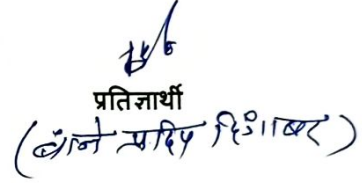 प्रतिज्ञार्थी
(बाने प्रदिप दिगंबर)